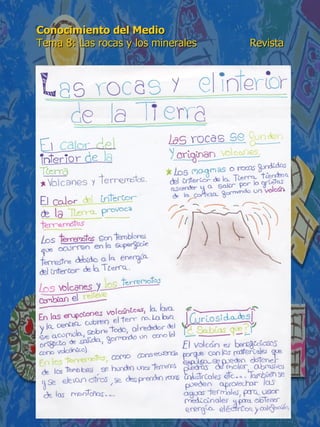 Conocimiento del Medio
Tema 8: Las rocas y los minerales Revista
Las rocas y el interior
de la Tierra
El calor del
interior de la
Tierra
* Volcanes y terremotos.
El calor del interior
de la Tierra provoca
terremotos
Los terremotos son temblores
que ocurren en la superficie
terrestre debido a la energía
del interior de la Tierra.
Los volcanes y los terremotos
cambian el relieve
En las erupciones volcánicas, la lava
y la ceniza cubren el terr no. La lava
se acomula, sobre todo, alrededor del
orificio de salida, formando un cono (el
cono volcánico).
En los terremotos, como consecuencia
de los temblores, se hunden unos terrenos
y se elevan otros, se desprenden rocas
de las montañas...
Las rocas se funden
y originan volcanes.
* Los magmas o rocas fundidas
del interior de la Tierra, tienden
ascender y a salir por la grietas
de la corteza formando un volcán.
Curiosidades
¿Sabías que?
El volcán es beneficioso
porque con los materiales que
expulsa se pueden obtener
piedras de moler, abrasivos
industriales etc... También se
pueden aprovechar las
aguas termales, para usar
medicinales y para obtener
energía eléctrica y calefacción.